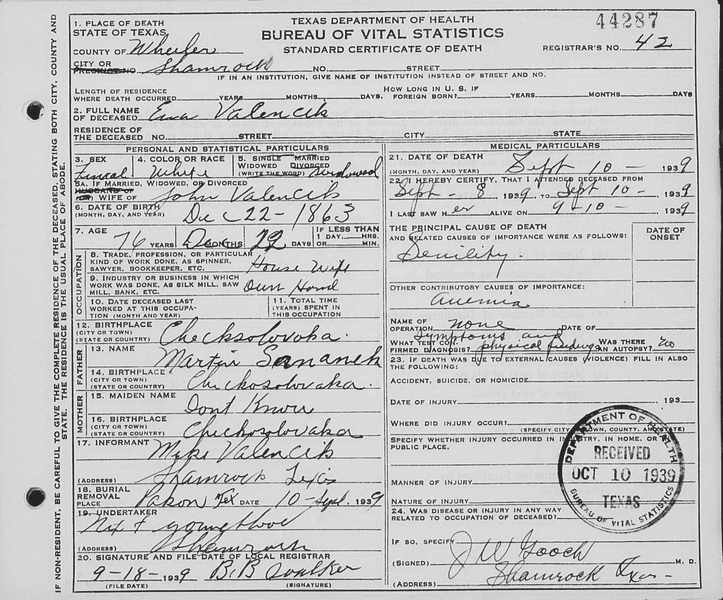 TEXAS DEPARTMENT OF HEALTH
BUREAU OF VITAL STATISTICS
STANDARD CERTIFICATE OF DEATH
44287
REGISTRAR'S NO. 42
1. PLACE OF DEATH
STATE OF TEXAS
COUNTY OF Wheeler
CITY OR
PRECINCT NO. Shamrock NO. STREET
IF IN AN INSTITUTION, GIVE NAME OF INSTITUTION INSTEAD OF STREET AND NO.
LENGTH OF RESIDENCE
WHERE DEATH OCCURRED YEARS MONTHS DAYS. HOW LONG IN U. S. IF
FOREIGN BORN? YEARS MONTHS DAYS
2. FULL NAME
OF DECEASED Eva Valencik
RESIDENCE OF
THE DECEASED NO. STREET CITY STATE
PERSONAL AND STATISTICAL PARTICULARS
3. SEX
Femal
4. COLOR OR RACE
White
5. SINGLE MARRIED
WIDOWED DIVORCED
(WRITE THE WORD)
5A. IF MARRIED, WIDOWED, OR DIVORCED
HUSBAND OF
OR WIFE OF John Valencik
6. DATE OF BIRTH
(MONTH, DAY, AND YEAR) Dec 22 - 1863
7. AGE
76 YEARS MONTHS DAYS
IF LESS THAN
1 DAY HRS.
OR MIN.
OCCUPATION
8. TRADE, PROFESSION, OR PARTICULAR
KIND OF WORK DONE, AS SPINNER,
SAWYER, BOOKKEEPER, ETC. House Wife
9. INDUSTRY OR BUSINESS IN WHICH
WORK WAS DONE, AS SILK MILL, SAW
MILL, BANK, ETC. Own Home
10. DATE DECEASED LAST
WORKED AT THIS OCCUPA-
TION (MONTH AND YEAR)
11. TOTAL TIME
(YEARS) SPENT IN
THIS OCCUPATION
12. BIRTHPLACE
(CITY OR TOWN)
(STATE OR COUNTRY) Checksolovoka
FATHER
13. NAME
Martin Sananek
14. BIRTHPLACE
(CITY OR TOWN)
(STATE OR COUNTRY) Chickosolovaka
MOTHER
15. MAIDEN NAME
Dont Know
16. BIRTHPLACE
(CITY OR TOWN)
(STATE OR COUNTRY) Chechosolovaka
17. INFORMANT
Mike Valencik
(ADDRESS) Shamrock Texas
18. BURIAL
REMOVAL
PLACE Pakan Tex DATE 10 - Sept. 1939
19. UNDERTAKER
Nix & Youngblood
(ADDRESS) Shamrock
20. SIGNATURE AND FILE DATE OF LOCAL REGISTRAR
9-18-1939 B.B.
(FILE DATE) (SIGNATURE)
MEDICAL PARTICULARS
21. DATE OF DEATH
(MONTH, DAY, AND YEAR) Sept 10 - 1939
22. I HEREBY CERTIFY, THAT I ATTENDED DECEASED FROM
Sept - 8 1939 TO Sept 10 - 1939
I LAST SAW Her ALIVE ON 9-10- 1939
THE PRINCIPAL CAUSE OF DEATH
AND RELATED CAUSES OF IMPORTANCE WERE AS FOLLOWS:
DATE OF
ONSET
Senility
OTHER CONTRIBUTORY CAUSES OF IMPORTANCE
Anemia
NAME OF
OPERATION none DATE OF
WHAT TEST CON-
FIRMED DIAGNOSIS? Symptoms and
physical findings WAS THERE
AN AUTOPSY? no
23. IF DEATH WAS DUE TO EXTERNAL CAUSES (VIOLENCE) FILL IN ALSO
THE FOLLOWING:
ACCIDENT, SUICIDE, OR HOMICIDE
DATE OF INJURY 193
WHERE DID INJURY OCCUR?
(SPECIFY CITY, TOWN, COUNTY, AND STATE)
SPECIFY WHETHER INJURY OCCURRED IN INDUSTRY, IN HOME, OR IN
PUBLIC PLACE.
MANNER OF INJURY
NATURE OF INJURY
24. WAS DISEASE OR INJURY IN ANY WAY
RELATED TO OCCUPATION OF DECEASED?
IF SO, SPECIFY
(SIGNED) J W Gooch M. D.
(ADDRESS) Shamrock Texas
DEPARTMENT OF HEALTH
RECEIVED
OCT 10 1939
TEXAS
BUREAU OF VITAL STATISTICS
IF NON-RESIDENT, BE CAREFUL TO GIVE THE COMPLETE RESIDENCE OF THE DECEASED, STATING BOTH CITY, COUNTY AND
STATE. THE RESIDENCE IS THE USUAL PLACE OF ABODE.